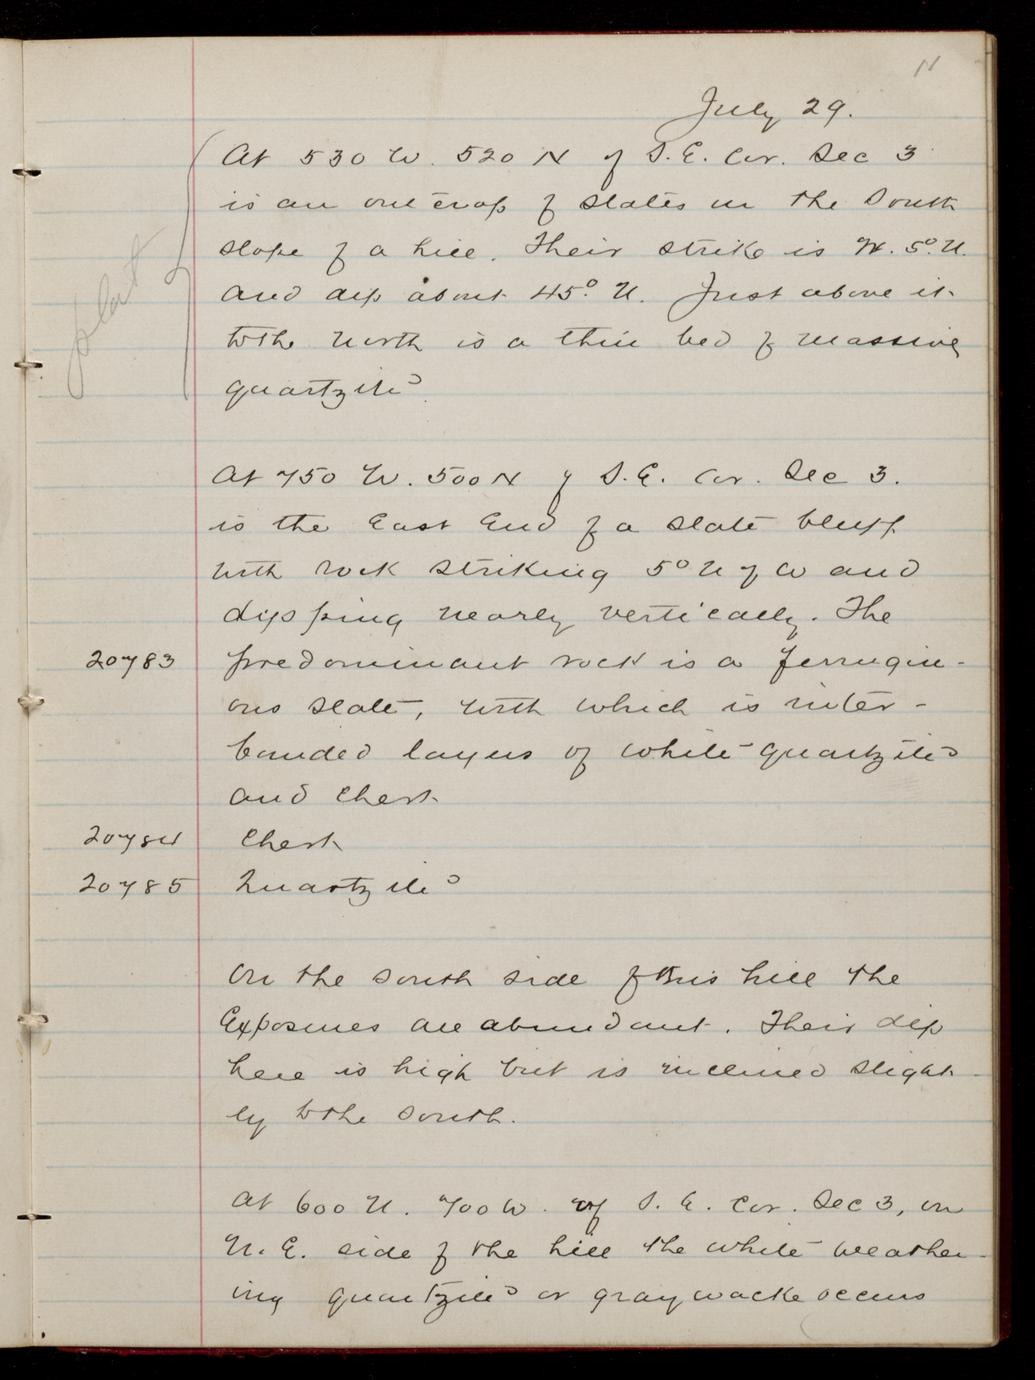 11
July 29.
At 530 W. 520 N of S.E. Cor. Sec 3
is an outcrop of slates on the South
slope of a hill. Their strike is W. 5° N.
and dip about 45° N. Just above it
to the north is a thin bed of massive
quartzite.
plat
At 750 W. 500 N of S.E. Cor. Sec 3.
is the East End of a slate bluff
with rock striking 5° N of W and
dipping nearly vertically. The
20783 predominant rock is a ferrugin-
ous slate, with which is inter-
banded layers of white quartzite
and chert.
20784 Chert
20785 Quartzite
On the south side of this hill the
Exposures are abundant. Their dip
here is high but is inclined slight-
ly to the south.
At 600 N. 700 W. of S.E. Cor. Sec 3, on
N.E. side of the hill the white weather-
ing quartzite or graywacke occurs